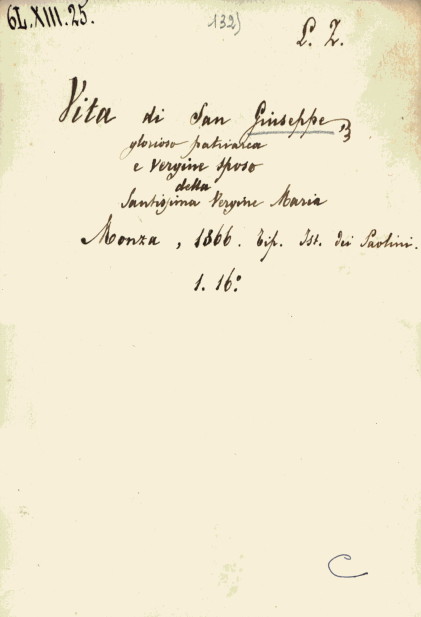 6L.XIII.25.
132)
L. Z.
Vita di San Giuseppe,
glorioso patriarca
e Vergine sposo
della
Santissima Vergine Maria
Monza, 1866. Tip. Ist. dei Paolini.
1. 16°
C